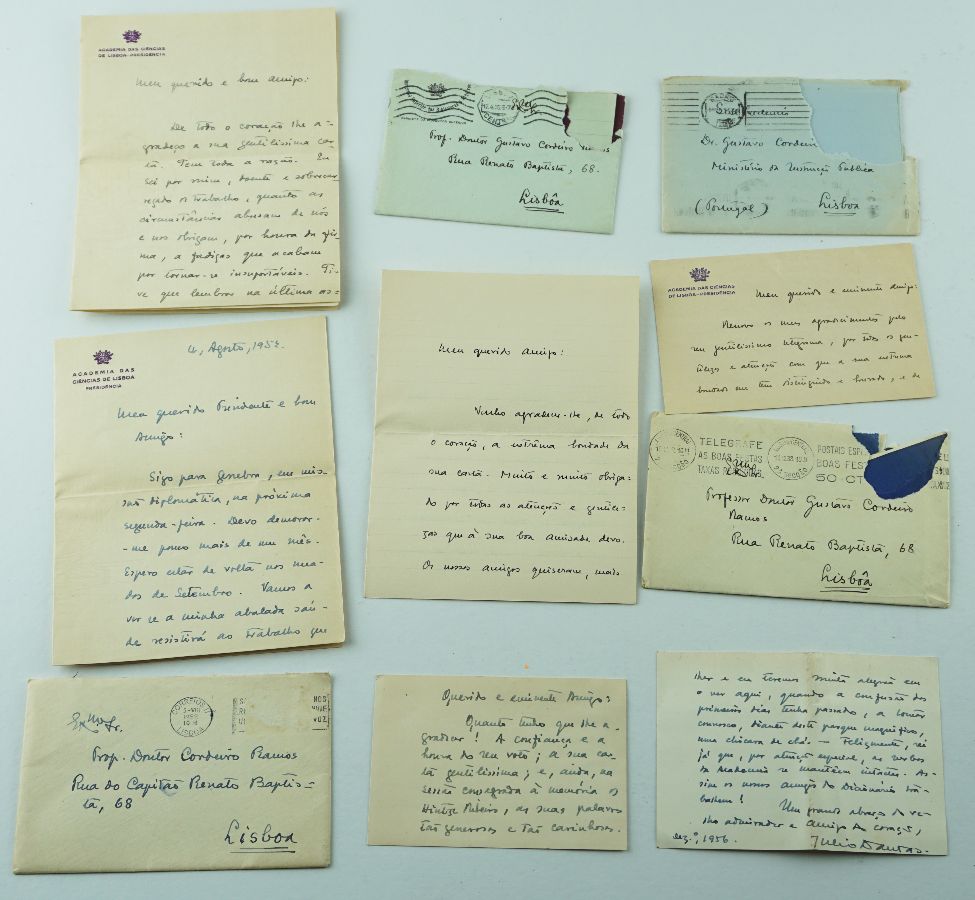 ACADEMIA DAS CIÊNCIAS
DE LISBOA-PRESIDÊNCIA
Meu querido e bom amigo:
De todo o coração lhe a-
gradeço a sua gentilíssima car-
ta. Tem toda a razão. Eu
sei por mim, doente e sobrecar-
regado de trabalho, quanto as
circunstâncias abusam de nós
e nos obrigam, por honra da fir-
ma, a fadigas que acabam
por tornar-se insuportáveis. Ti-
ve que lembrar na última as-
ACADEMIA DAS
CIÊNCIAS DE LISBOA
PRESIDÊNCIA
4, Agosto, 1952.
Meu querido Presidente e bom
Amigo:
Sigo para Genebra, em mis-
são diplomática, na próxima
segunda-feira. Devo demorar-
-me pouco mais de um mês.
Espero estar de volta nos mea-
dos de Setembro. Vamos a
ver se a minha abalada saú-
de resistirá ao trabalho que
CORREIOS
LISBOA
Exmo. Sr.
Prof. Doutor Cordeiro Ramos
Rua do Capitão Renato Baptis-
ta, 68
Lisboa
Prof. Doutor Gustavo Cordeiro
Rua Renato Baptista, 68.
Lisbôa
Dr. Gustavo Cordeiro
Ministério da Instrução Publica
(Portugal) Lisboa
Meu querido Amigo:
Venho agradecer-lhe, de todo
o coração, a extrêma bondade da
sua carta. Muito e muito obriga-
do por todas as atenções e gentile-
zas que à sua boa amisade devo.
Os nossos amigos quiseram, mais
ACADEMIA DAS CIÊNCIAS
DE LISBOA-PRESIDÊNCIA
Meu querido e eminente Amigo:
Renovo os meus agradecimentos pelo
seu gentilíssimo telegrama, por todas as gen-
tilezas e atenções com que a sua extrema
bondade me tem distinguido e honrado, e de
TELEGRAFE
AS BOAS FESTAS
TAXAS
POSTAIS
BOAS FEST
50 CT
Professor Doutor Gustavo Cordeiro
Ramos
Rua Renato Baptista, 68
Lisbôa
Querido e eminente Amigo:
Quanto tenho que lhe a-
gradecer! A confiança e a
honra do seu voto; a sua car-
ta gentilíssima; e, ainda, na
sessão consagrada à memoria de
Hintze Ribeiro, as suas palavras
tão generosas e tão carinhosas.
lher e eu teremos muita alegria em
o ver aqui, quando a confusão dos
primeiros dias tenha passado, a tomar
connosco, diante deste parque magnífico,
uma chávena de chá. — Felizmente, sei
já que, por atenção especial, as verbas
da Academia se mantêm intactas. As-
sim os nossos amigos do Dicionário tra-
balhem! Um grande abraço do ve-
lho admirador e amigo do coração,
dez.º, 1956. Julio Dantas.